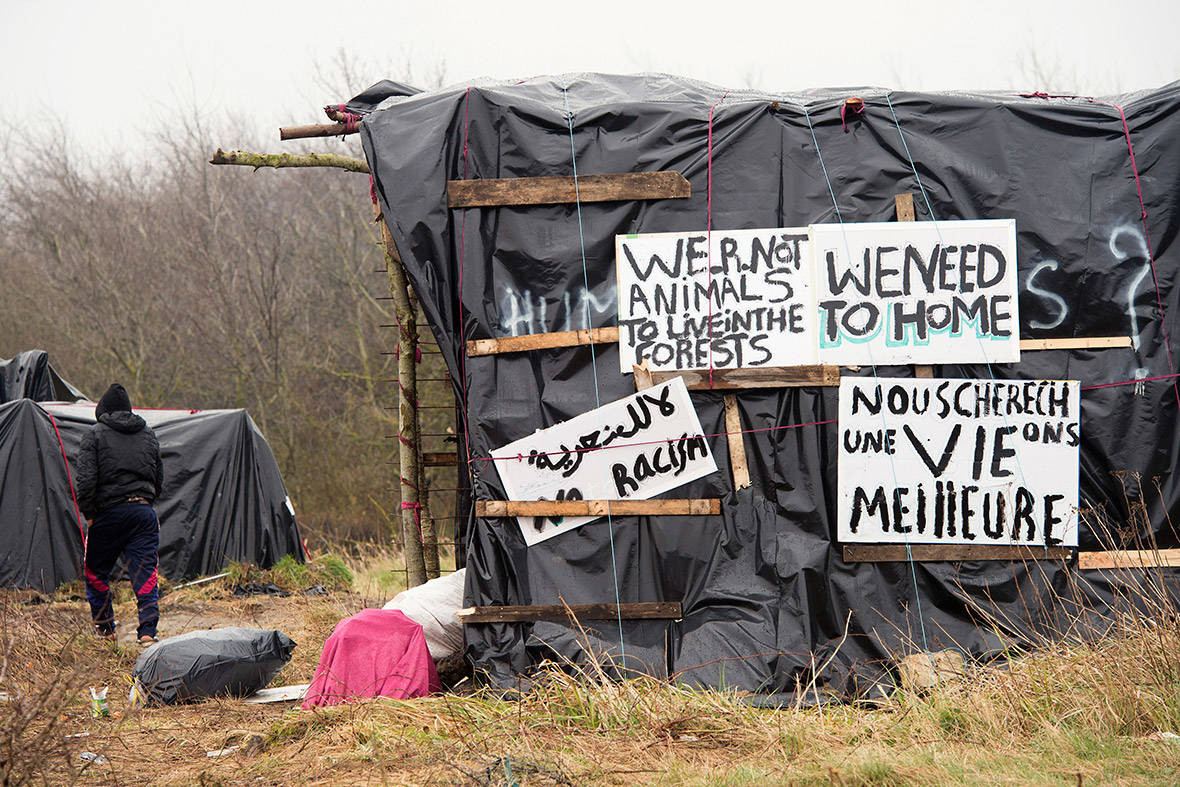 W.E.R.NOT
ANIMALS
TO LIVEINTHE
FORESTS
WENEED
TO HOME
لا للعنصرية
NO RACISM
NOUSCHERECH
UNE VIE ONS
MEILLEURE
HUM
S?